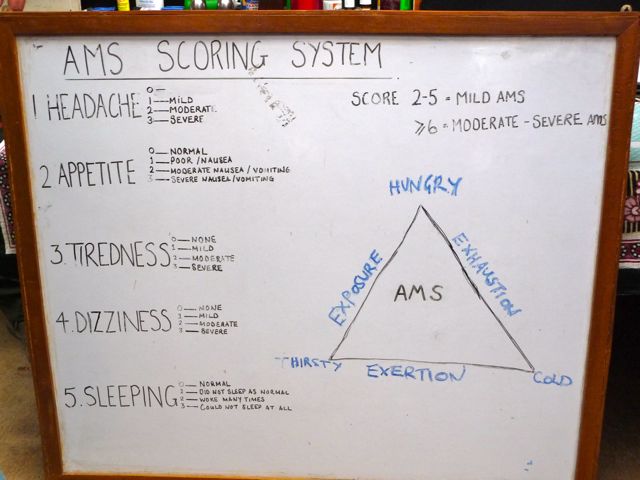 AMS SCORING SYSTEM
1 HEADACHE
0 —
1 — MILD
2 — MODERATE
3 — SEVERE
2 APPETITE
0 — NORMAL
1 — POOR / NAUSEA
2 — MODERATE NAUSEA / VOMITING
3 — SEVERE NAUSEA / VOMITING
3. TIREDNESS
0 — NONE
1 — MILD
2 — MODERATE
3 — SEVERE
4. DIZZINESS
0 — NONE
1 — MILD
2 — MODERATE
3 — SEVERE
5. SLEEPING
0 — NORMAL
1 — DID NOT SLEEP AS NORMAL
2 — WOKE MANY TIMES
3 — COULD NOT SLEEP AT ALL
SCORE 2-5 = MILD AMS
≥6 = MODERATE - SEVERE AMS
HUNGRY
EXPOSURE
EXHAUSTION
AMS
THIRSTY
EXERTION
COLD